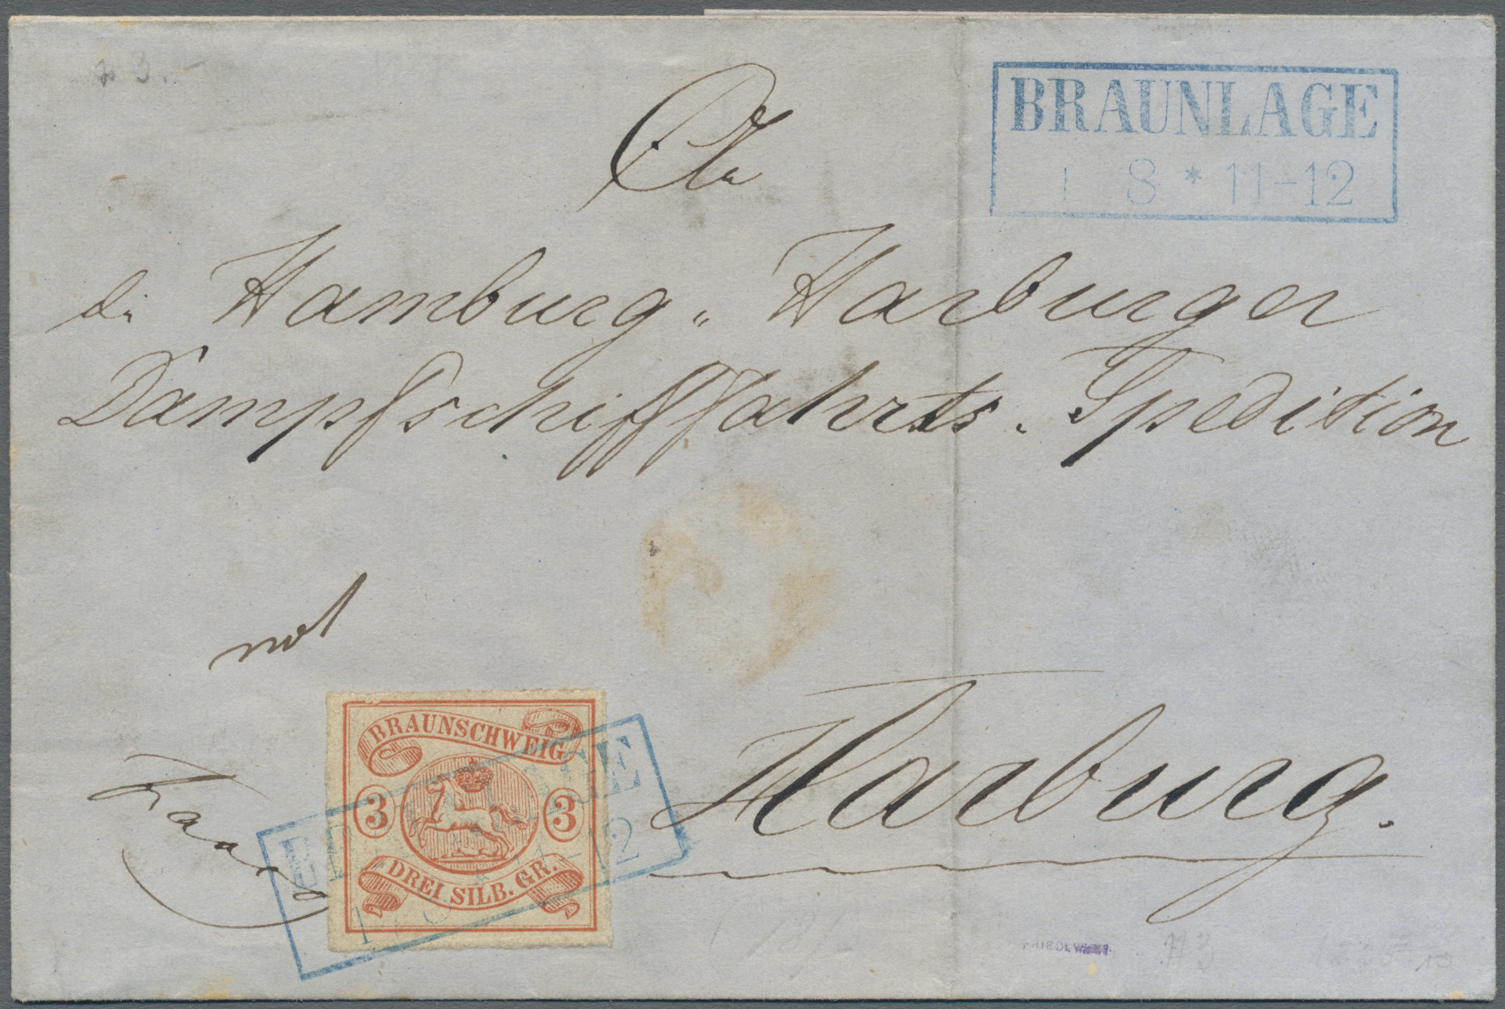 BRAUNLAGE
1 8 * 11-12
An
die Hamburg. Harburger
Dampfschifffahrts. Spedition
Harburg.
BRAUNSCHWEIG
3 3
DREI SILB. GR.
# 3